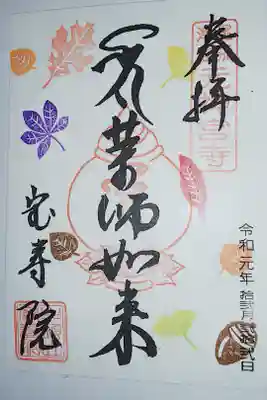 奉拝
薬師如来
宝寿院
令和元年拾弐月拾弐日